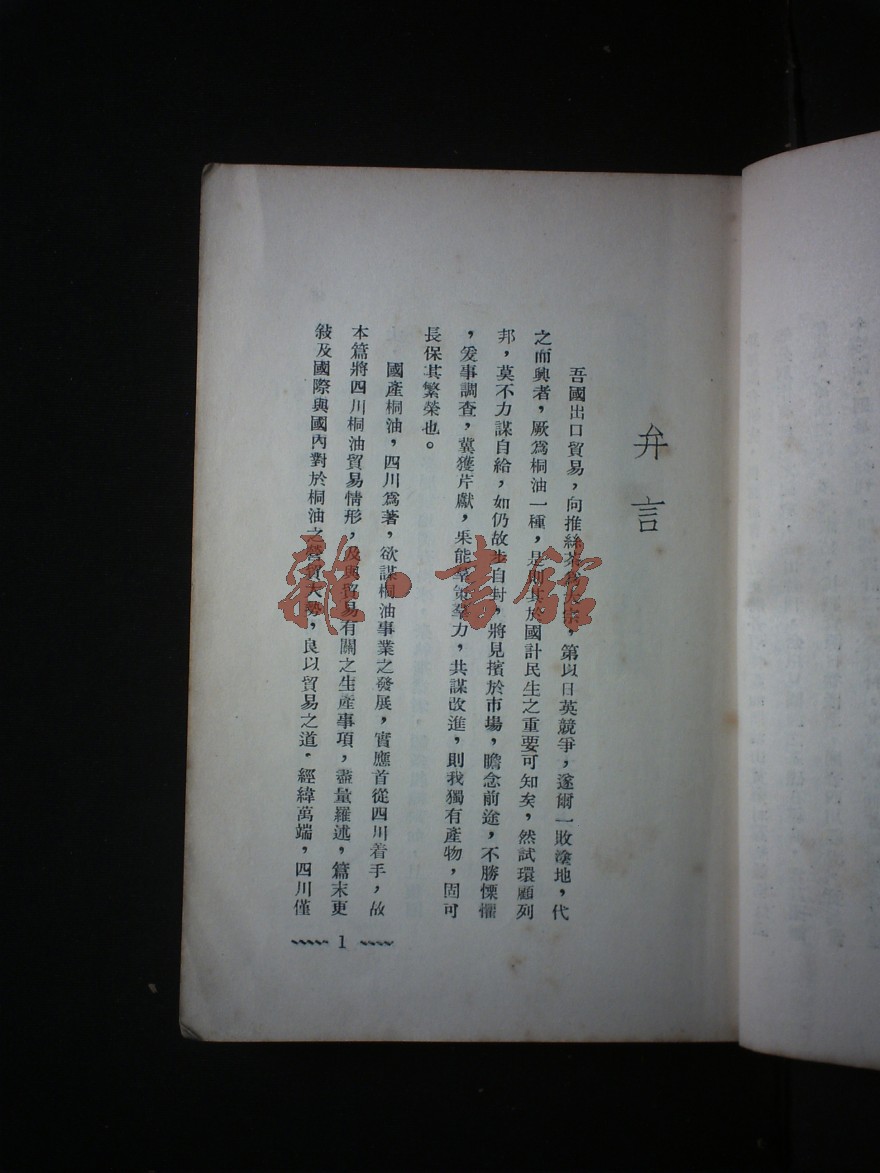 弁言
吾國出口貿易，向推絲茶爲大宗，第以日英競爭，遂爾一敗塗地，代
之而興者，厥爲桐油一種，是則其於國計民生之重要可知矣，然試環顧列
邦，莫不力謀自給，如仍故步自封，將見擯於市場，瞻念前途，不勝慄懼
，爰事調查，冀獲芹獻，果能羣策羣力，共謀改進，則我獨有產物，固可
長保其繁榮也。
國產桐油，四川爲著，欲謀桐油事業之發展，實應首從四川着手，故
本篇將四川桐油貿易情形，及與貿易有關之生產事項，盡量羅述，篇末更
敍及國際與國內對於桐油之營貿大勢，良以貿易之道．經緯萬端，四川僅
1
雜·書館